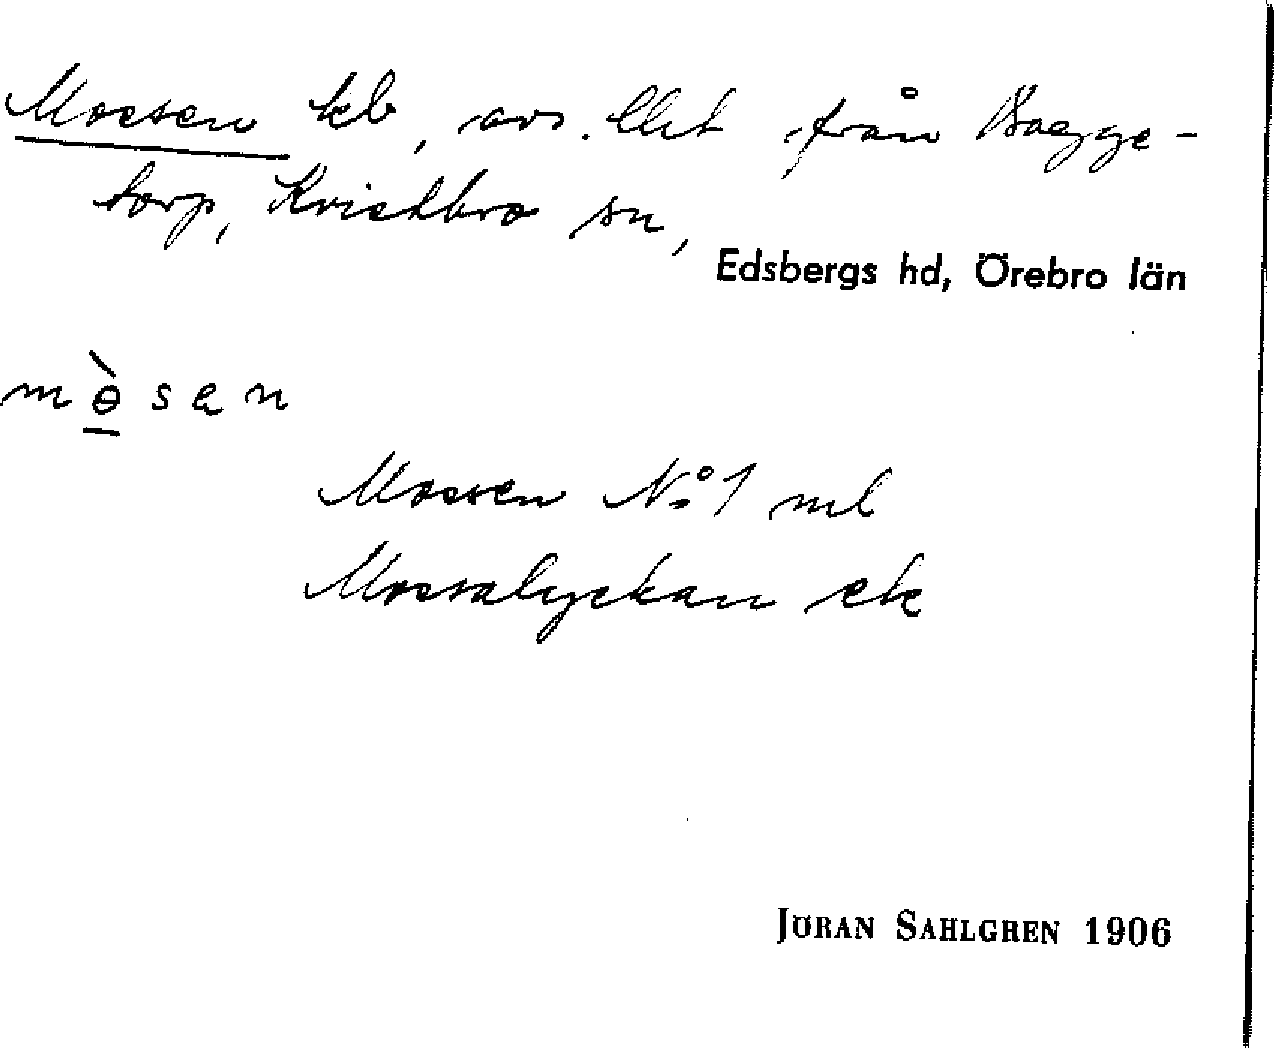 Mossen tcb, avs. lht från Bagge-
torp, Kvistbro sn,
Edsbergs hd, Örebro län
mɵ̠̀sen
Mossen No 1 ml
Mossalyckan ek
JÖRAN SAHLGREN 1906